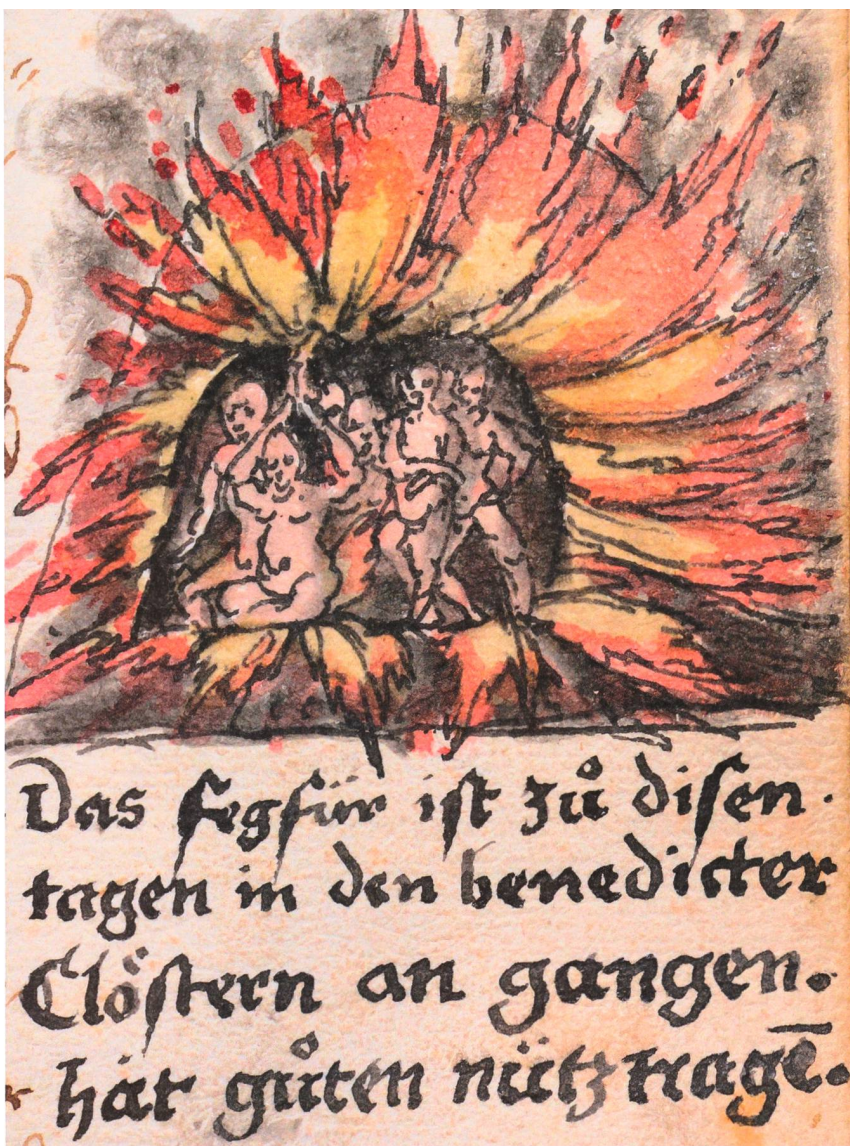 Das fegfür ist zů disen.
tagen in den benedicter
Clöstern an gangen.
hat gůten nütz tragē.